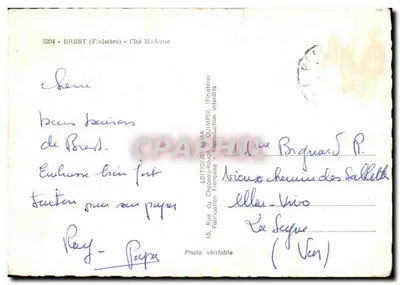 5234 - BREST (Finistère) - Cité Moderne
chérie
bons baisers
de Brest.
Embrasse bien fort
tonton pour son papa
Ray -
Papa
EDITIONS
16, Rue du Chapeau-Rouge - QUIMPER (Finistère)
Fabrication Française - Reproduction interdite
Photo véritable
CPARAMA
Mme Bignard P.
vieux chemin des Sablettes
Mar-Vivo
La Seyne
(Var)